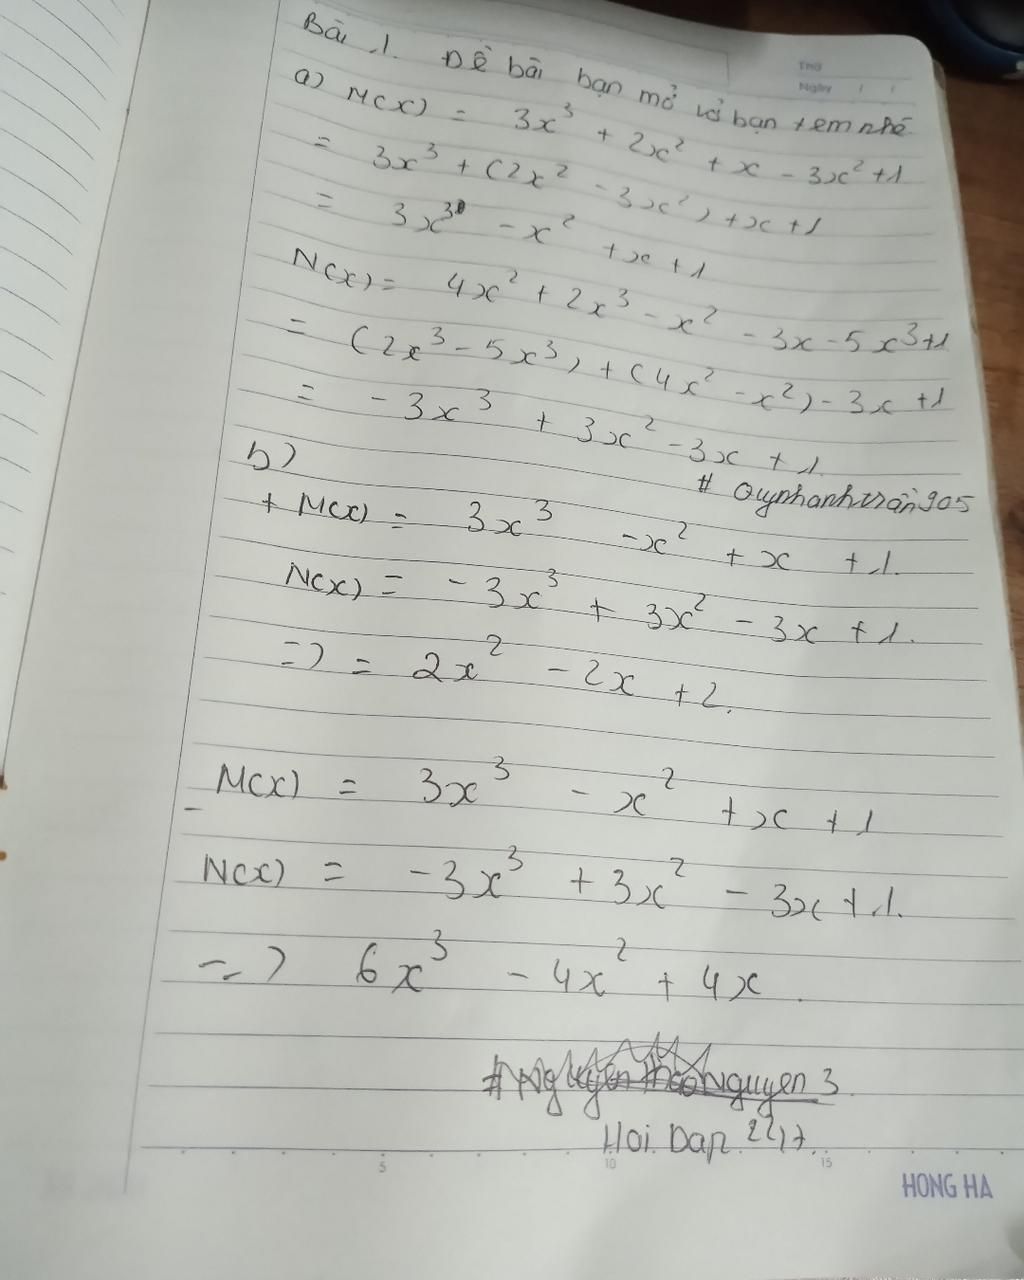 Bài 1. Đề bài bạn mở vở bạn xem nhé
Thứ
Ngày / /
a) M(x) = 3x³ + 2x² + x - 3x² + 1
= 3x³ + (2x² - 3x²) + x + 1
= 3x³ - x² + x + 1
N(x) = 4x² + 2x³ - x² - 3x - 5x³ + 1
= (2x³ - 5x³) + (4x² - x²) - 3x + 1
= -3x³ + 3x² - 3x + 1.
b)
# Quynhanhtrần905
+ M(x) = 3x³ - x² + x + 1.
N(x) = -3x³ + 3x² - 3x + 1.
=> = 2x² - 2x + 2.
M(x) = 3x³ - x² + x + 1
-
N(x) = -3x³ + 3x² - 3x + 1.
=> 6x³ - 4x² + 4x.
Nguyen 3
Hoi Dap 247.
5 10 15
HONG HA